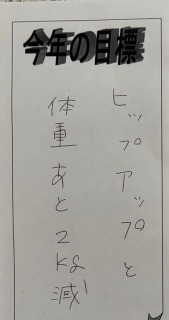 今年の目標
ヒップアップと
体重あと2kg減!